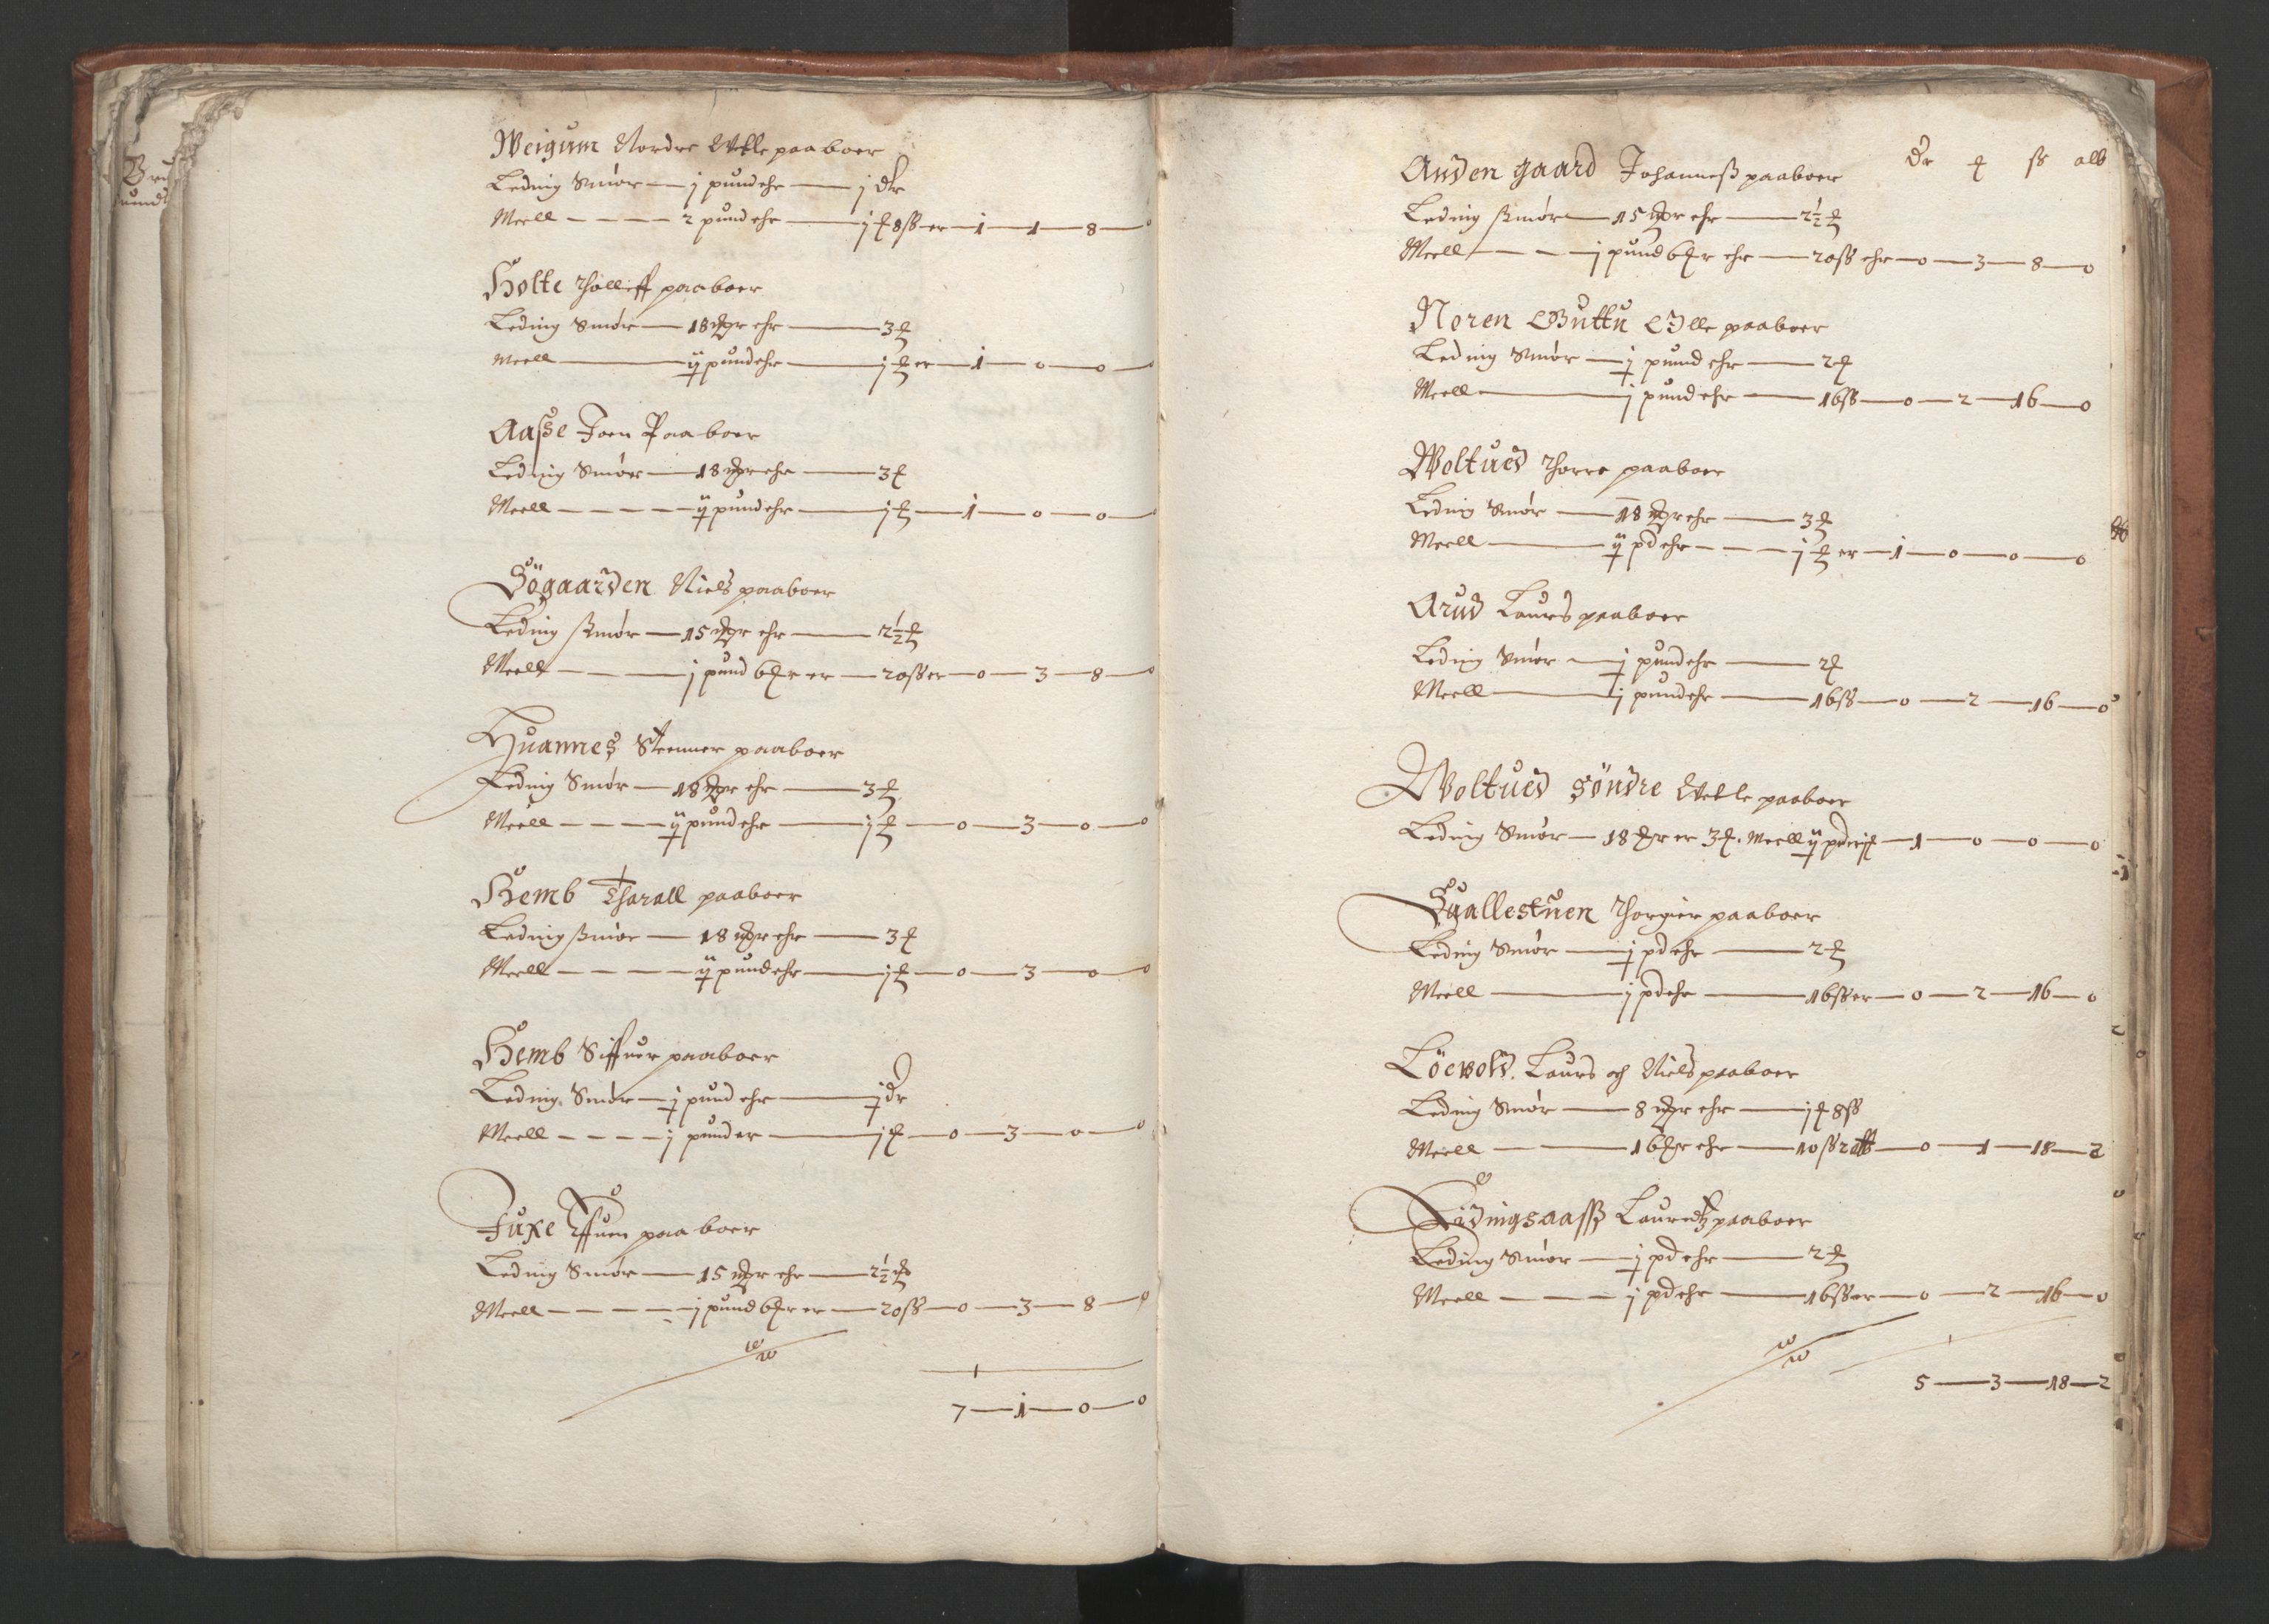 Weigum Nordre Vetle paaboer
Leding Smör — j pund ehr — j dr
Meell — 2 pund ehr — j ₰ 8ß er — 1 — 1 — 8 — 0
Holte Tholleff paaboer
Leding Smör — 18 mr ehr — 3 ₰
Meell — ij pund ehr — j ₰ er — 1 — 0 — 0 — 0
Aasse Joen Paaboer
Leding Smör — 18 mr ehr — 3 ₰
Meell — ij pund ehr — j ₰ — 1 — 0 — 0 —
Sögaarden Niels paaboer
Leding Smör — 15 mr ehr — 2½ ₰
Meell — j pund 6 mr er — 20ß er — 0 — 3 — 8 — 0
Huannes Steenner paaboer
Leding Smör — 18 mr ehr — 3 ₰
Meell — ij pund ehr — j ₰ — 0 — 3 — 0 — 0
Hemb Tharall paaboer
Leding smör — 18 mr ehr — 3 ₰
Meell — ij pund ehr — j ₰ — 0 — 3 — 0 — 0
Hemb Siffuer paaboer
Leding Smör — j pund ehr — j dr
Meell — j pund er — j ₰ — 0 — 3 — 0 — 0
Fuxe Iffuen paaboer
Leding Smör — 15 mr ehr — 2½ ₰
Meell — j pund 6 mr er — 20ß — 0 — 3 — 8 — 0
7 — 1 — 0 — 0
dr ₰ ß alb
Anden gaard Johanness paaboer
Leding smör — 15 mr ehr — 2½ ₰
Meell — j pund 6 mr ehr — 20ß ehr — 0 — 3 — 8 — 0
Noren Olle paaboer
Leding Smör — j pund ehr — 2 ₰
Meell — j pund ehr — 16ß — 0 — 2 — 16 — 0
Woltued Thorre paaboer
Leding Smör — 18 mr ehr — 3 ₰
Meell — ij pd ehr — j ₰ er — 1 — 0 — 0 — 0
Arud Laurs paaboer
Leding Smör — j pund ehr — 2 ₰
Meell — j pund ehr — 16ß — 0 — 2 — 16 — 0
Woltued Söndre Vetle paaboer
Leding Smör — 18 mr er 3 ₰. Meell ij pd er j ₰ — 1 — 0 — 0 — 0
Suallestuen Thorgier paaboer
Leding Smör — j pd ehr — 2 ₰
Meell — j pd ehr — 16ß er — 0 — 2 — 16 — 0
Löevold. Laurs och Niels paaboer
Leding Smör — 8 mr ehr — j ₰ 8ß
Meell — 16 mr ehr — 10ß 2 — 0 — 1 — 18 — 2
Lidingsaass Lauredtz paaboer
Leding Smör — j pd ehr — 2 ₰
Meell — j pd ehr — 16ß er — 0 — 2 — 16 — 0
5 — 3 — 18 — 2